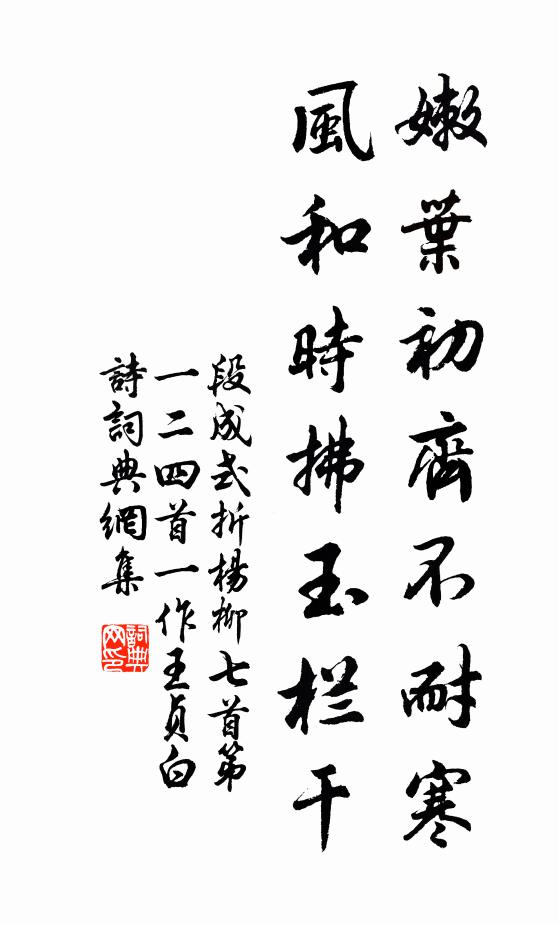 嫩葉初齊不耐寒
風和時拂玉栏干
段成式折楊柳七首第
一二四首一作王貞白
詩詞典網集
詞典網印